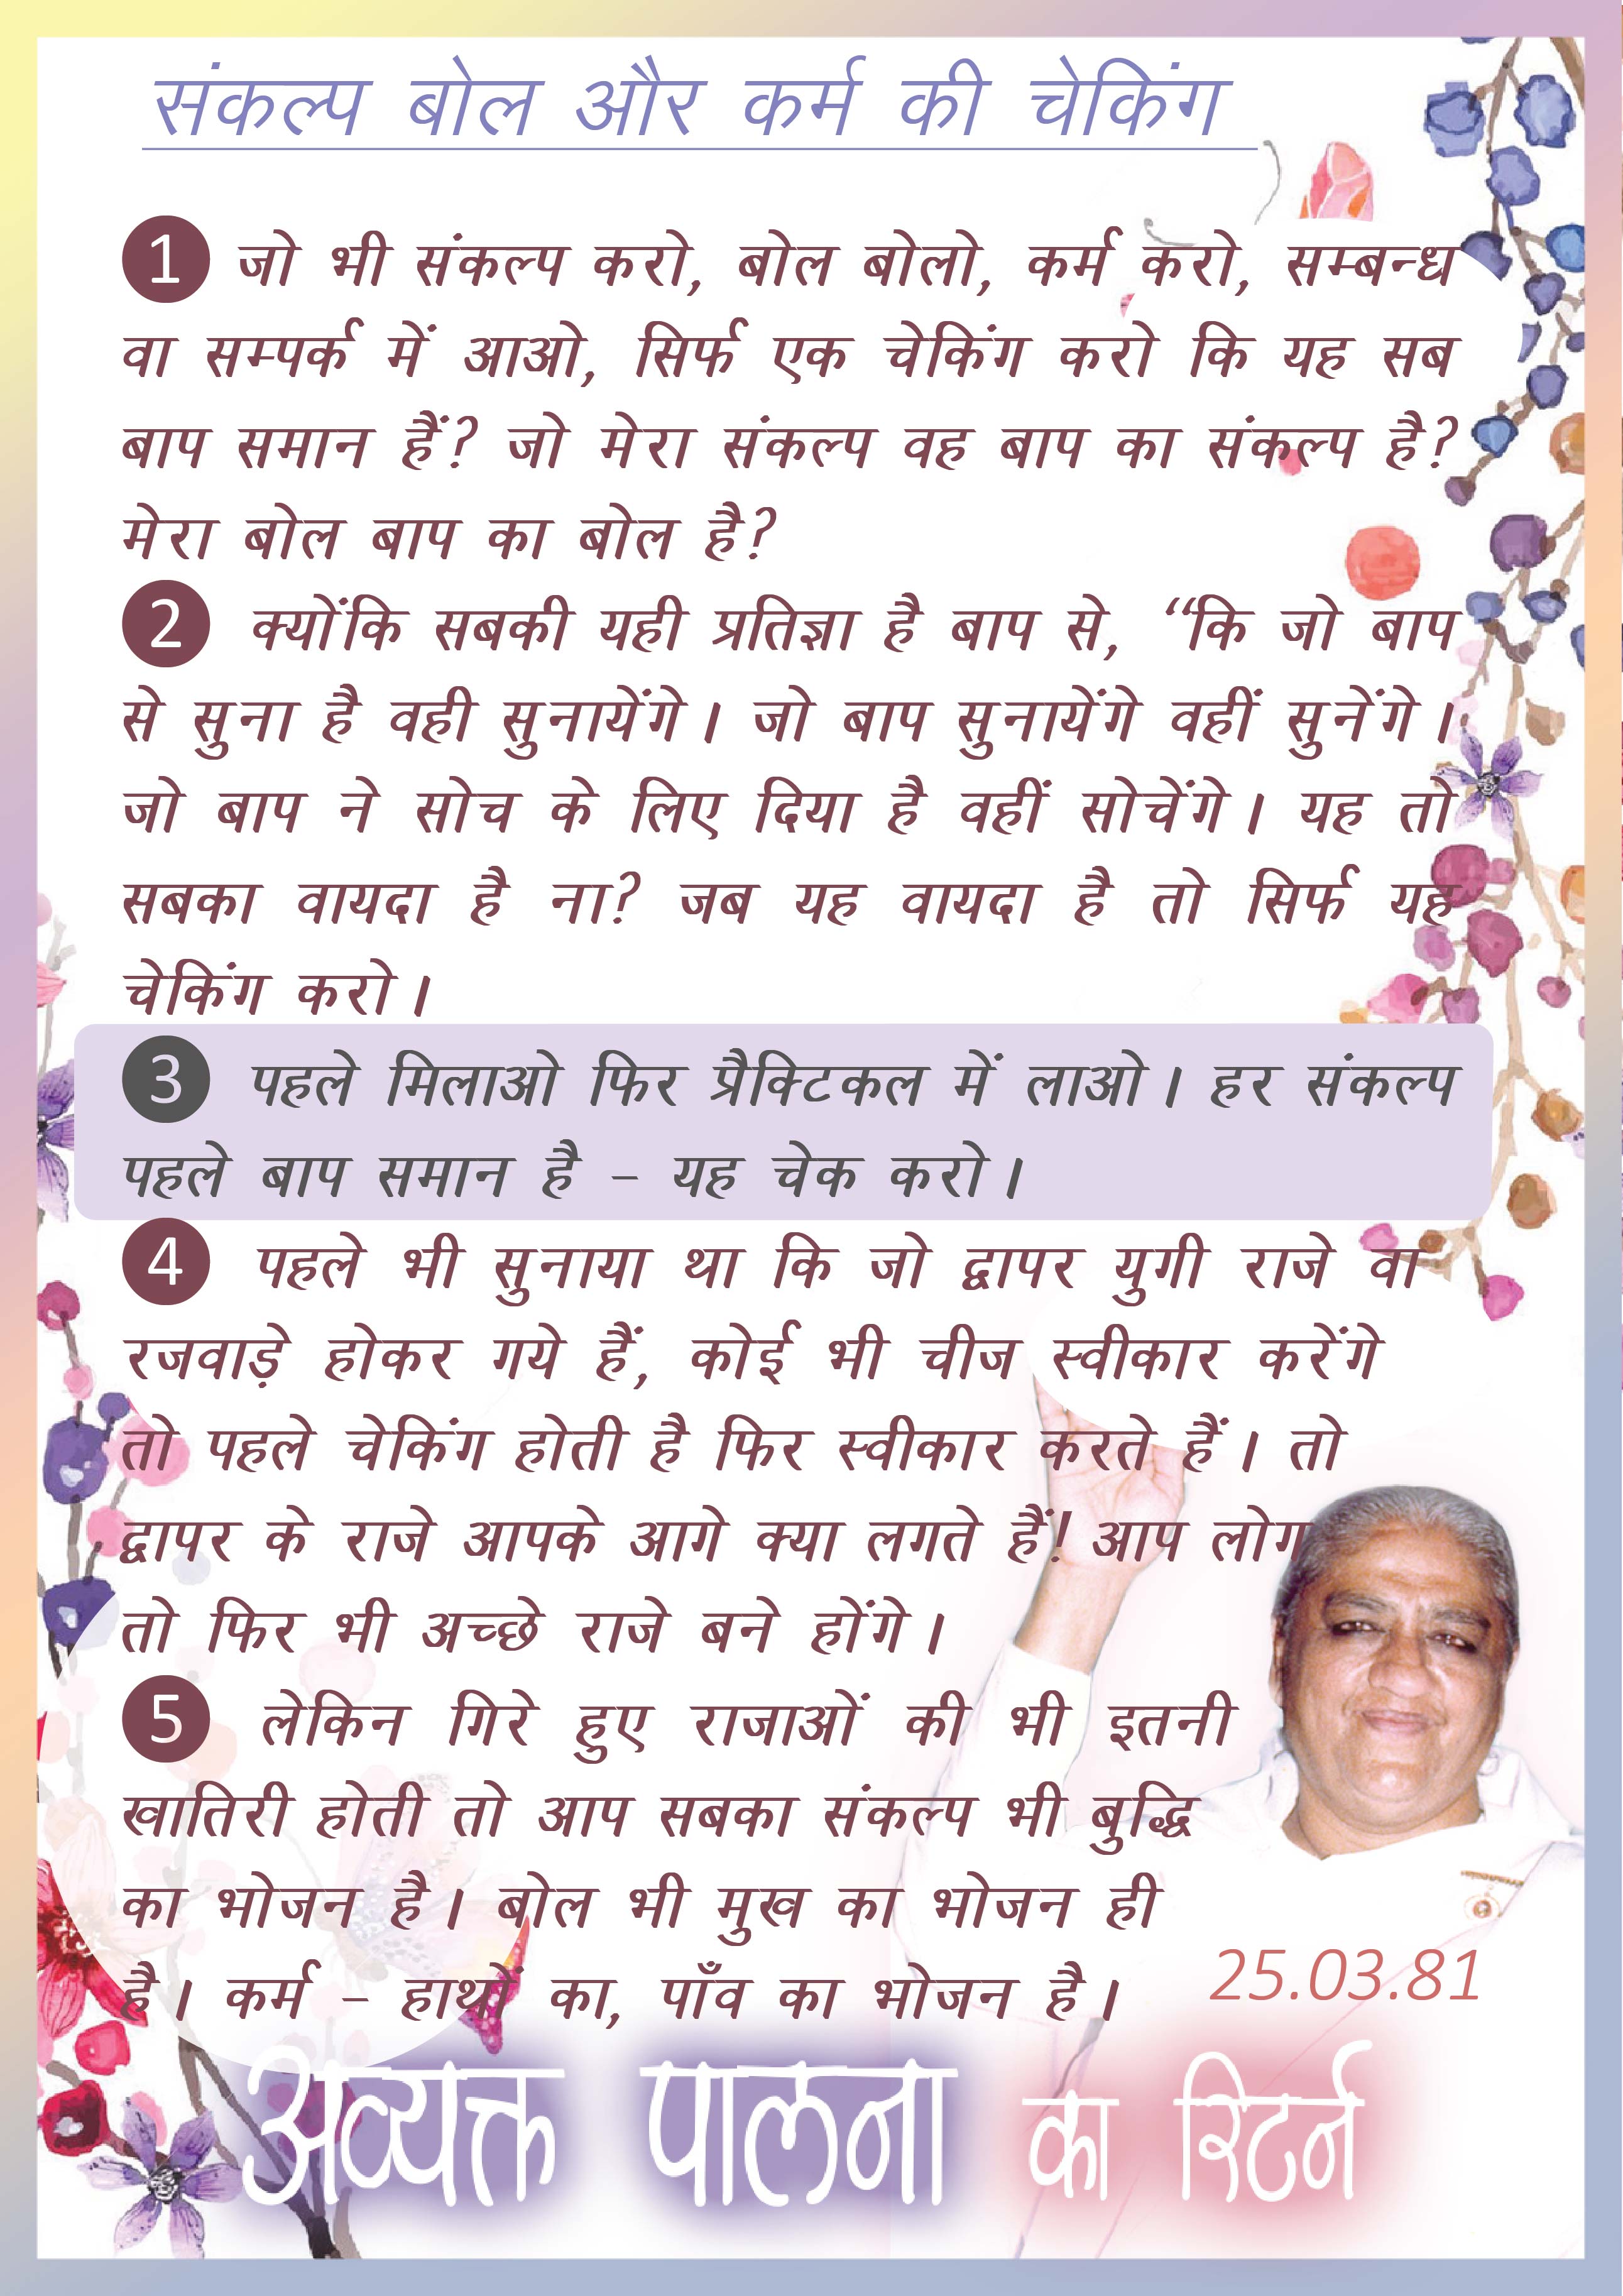 संकल्प बोल और कर्म की चेकिंग
1 जो भी संकल्प करो, बोल बोलो, कर्म करो, सम्बन्ध
वा सम्पर्क में आओ, सिर्फ एक चेकिंग करो कि यह सब
बाप समान हैं? जो मेरा संकल्प वह बाप का संकल्प है?
मेरा बोल बाप का बोल है?
2 क्योंकि सबकी यही प्रतिज्ञा है बाप से, “कि जो बाप
से सुना है वही सुनायेंगे। जो बाप सुनायेंगे वहीं सुनेंगे।
जो बाप ने सोच के लिए दिया है वहीं सोचेंगे। यह तो
सबका वायदा है ना? जब यह वायदा है तो सिर्फ यह
चेकिंग करो।
3 पहले मिलाओ फिर प्रैक्टिकल में लाओ। हर संकल्प
पहले बाप समान है – यह चेक करो।
4 पहले भी सुनाया था कि जो द्वापर युगी राजे वा
रजवाड़े होकर गये हैं, कोई भी चीज स्वीकार करेंगे
तो पहले चेकिंग होती है फिर स्वीकार करते हैं। तो
द्वापर के राजे आपके आगे क्या लगते हैं! आप लोग
तो फिर भी अच्छे राजे बने होंगे।
5 लेकिन गिरे हुए राजाओं की भी इतनी
खातिरी होती तो आप सबका संकल्प भी बुद्धि
का भोजन है। बोल भी मुख का भोजन ही
है। कर्म – हाथों का, पाँव का भोजन है।
25.03.81
अव्यक्त पालना का रिटर्न